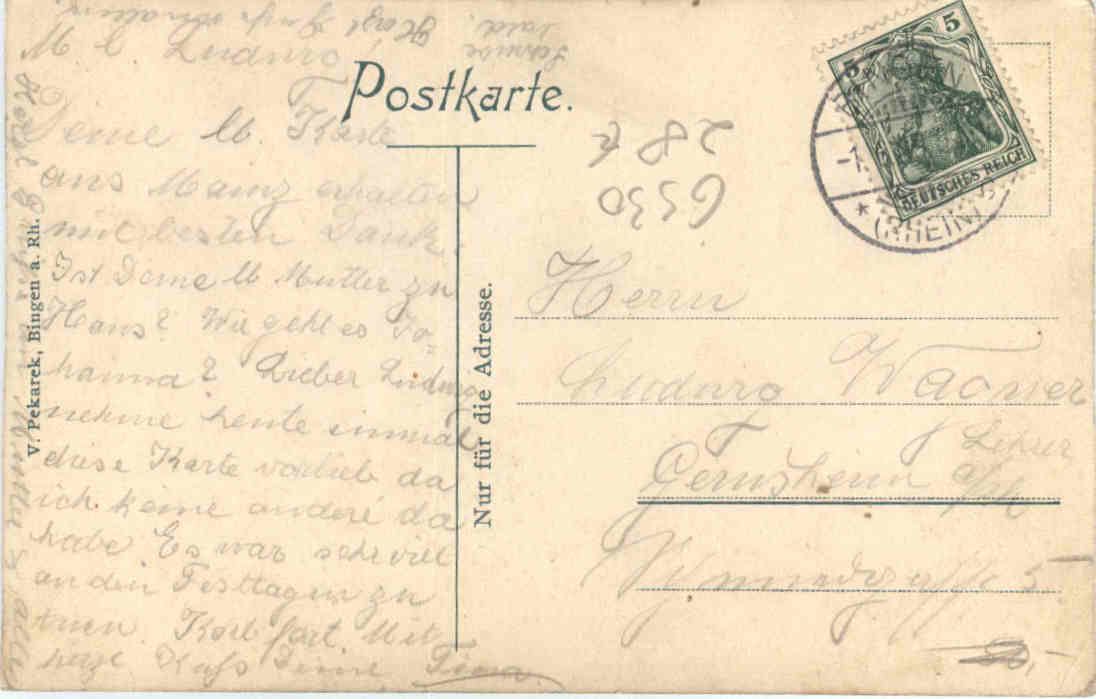 Postkarte.
M l Ludwig
Deine lb. Karte
aus Mainz erhalten
mit besten Dank
Ist Deine lb Mutter zu
Haus? Wie geht es Jo-
hanna? Lieber Ludwig
nehme heute einmal
diese Karte vorlieb da
ich keine andere da
habe Es war sehr viel
an den Festtagen zu
tuen. fort. Mit
herzl Deine Tina
V. Pekarek, Bingen a. Rh.
Nur für die Adresse.
28
6530
5 5
DEUTSCHES REICH
(RHEIN)
Herrn
Ludwig Wagner
Lehrer
Gernsheim a/Rh
5